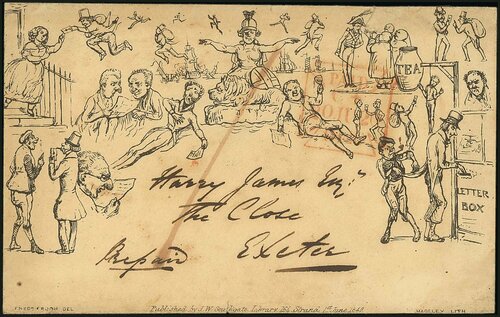 TEA
PAID
LETTER
BOX
Harry James Esqr
The Close
Prepaid Exeter
Published by J.W. Southgate, Library, 164, Strand, 1st June 1840
MADELEY LITH